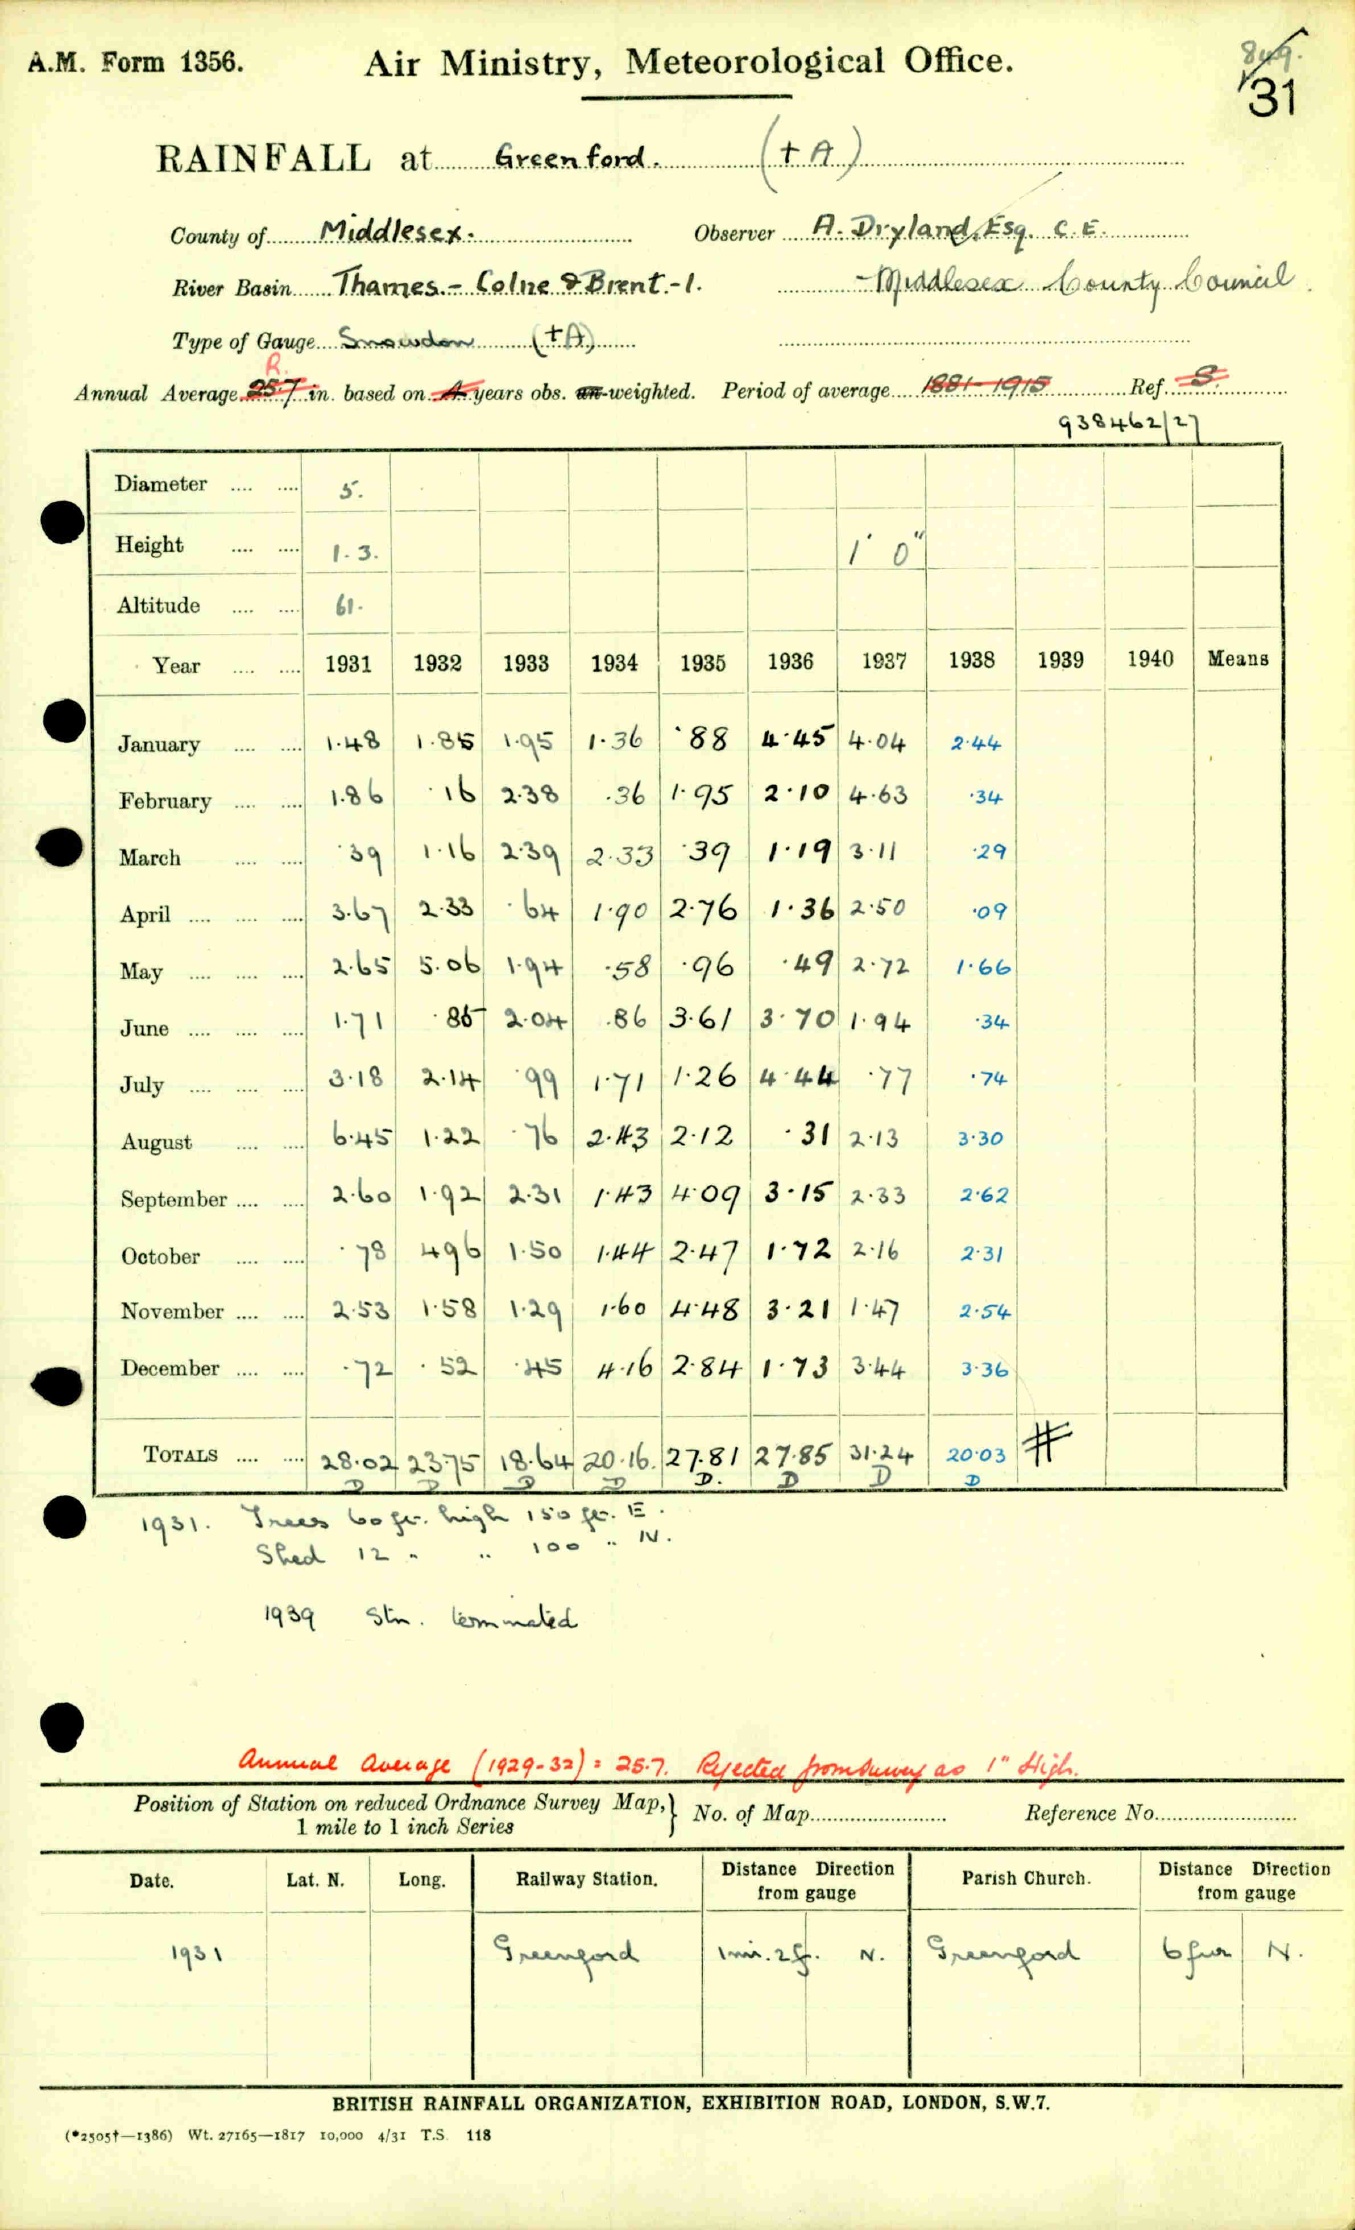 A.M. Form 1356.
Air Ministry, Meteorological Office.
849.
31
RAINFALL at Greenford. (+A)
County of Middlesex. Observer A. Dryland, Esq. C.E.
River Basin Thames.- Colne & Brent.-1. -Middlesex County Council.
Type of Gauge Snowdon (+A)
R.
Annual Average 25.7 in. based on 4 years obs. un-weighted. Period of average 1881-1915 Ref. S.
938462/27
Diameter .... .... 5.
Height .... .... 1.3. 1' 0"
Altitude .... .... 61.
Year .... .... 1931 1932 1933 1934 1935 1936 1937 1938 1939 1940 Means
January .... .... 1.48 1.85 1.95 1.36 .88 4.45 4.04 2.44
February .... .... 1.86 .16 2.38 .36 1.95 2.10 4.63 .34
March .... .... .39 1.16 2.39 2.33 .39 1.19 3.11 .29
April .... .... .... 3.67 2.33 .64 1.90 2.76 1.36 2.50 .09
May .... .... .... 2.65 5.06 1.94 .58 .96 .49 2.72 1.66
June .... .... .... 1.71 .85 2.04 .86 3.61 3.70 1.94 .34
July .... .... .... 3.18 2.14 .99 1.71 1.26 4.44 .77 .74
August .... .... 6.45 1.22 .76 2.43 2.12 .31 2.13 3.30
September .... .... 2.60 1.92 2.31 1.43 4.09 3.15 2.33 2.62
October .... .... .78 4.96 1.50 1.44 2.47 1.72 2.16 2.31
November .... .... 2.53 1.58 1.29 1.60 4.48 3.21 1.47 2.54
December .... .... .72 .52 .45 4.16 2.84 1.73 3.44 3.36
TOTALS .... .... 28.02 23.75 18.64 20.16. 27.81 27.85 31.24 20.03 #
D D D D D. D D D
1931. Trees 60 ft. high 150 ft. E.
Shed 12 " " 100 " N.
1939 Stn. terminated
Annual Average (1929-32) = 25.7. Rejected from Survey as 1" High.
Position of Station on reduced Ordnance Survey Map, 1 mile to 1 inch Series } No. of Map Reference No.
Date. Lat. N. Long. Railway Station. Distance Direction from gauge Parish Church. Distance Direction from gauge
1931 Greenford 1 mi. 2 f. N. Greenford 6 fur N.
BRITISH RAINFALL ORGANIZATION, EXHIBITION ROAD, LONDON, S.W.7.
(*2505†—1386) Wt. 27165—1817 10,000 4/31 T.S. 118